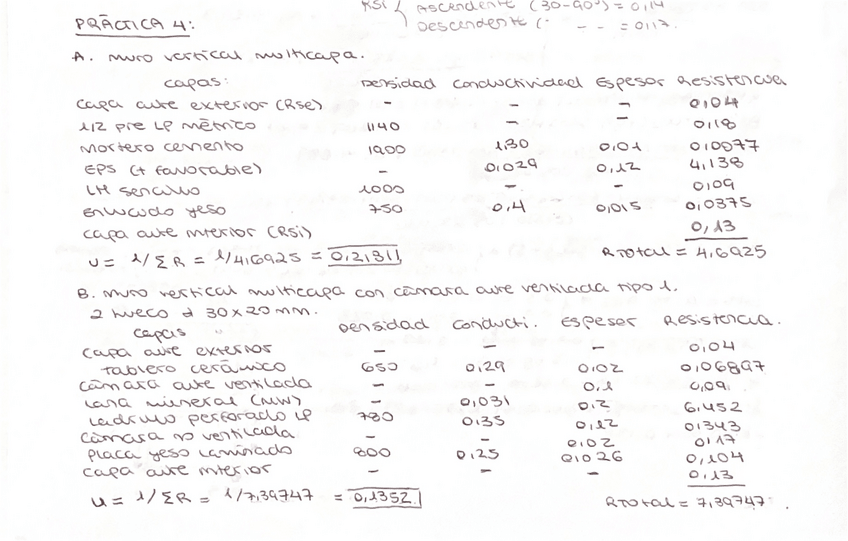 RSI Ascendente (30-90º) = 0,14
Descendente (- - - = 0,17.
PRÁCTICA 4:
A. Muro vertical multicapa.
capas: Densidad Conductividad Espesor Resistencia
capa aire exterior (Rse) - - - 0,04
1/2 pie LP métrico 1140 - - 0,18
Mortero cemento 1900 1,30 0,01 0,0077
EPS (+ favorable) - 0,029 0,12 4,138
LH sencillo 1000 - - 0,09
Enlucido yeso 750 0,4 0,015 0,0375
capa aire interior (Rsi) 0,13
U = 1/ΣR = 1/4,6925 = 0,2131 RTotal = 4,6925
B. Muro vertical multicapa con cámara aire ventilada tipo 1.
2 hueco d 30x20 mm.
capas Densidad Conducti. Espesor Resistencia.
capa aire exterior - - - 0,04
Tablero cerámico 650 0,29 0,02 0,06897
cámara aire ventilada - - 0,1 0,09
Lana mineral (MW) - 0,031 0,2 6,452
Ladrillo perforado LP 780 0,35 0,12 0,343
cámara no ventilada - - 0,02 0,17
Placa yeso laminado 800 0,25 0,026 0,104
capa aire interior - - - 0,13
U = 1/ΣR = 1/7,39747 = 0,1352 RTotal = 7,39747.